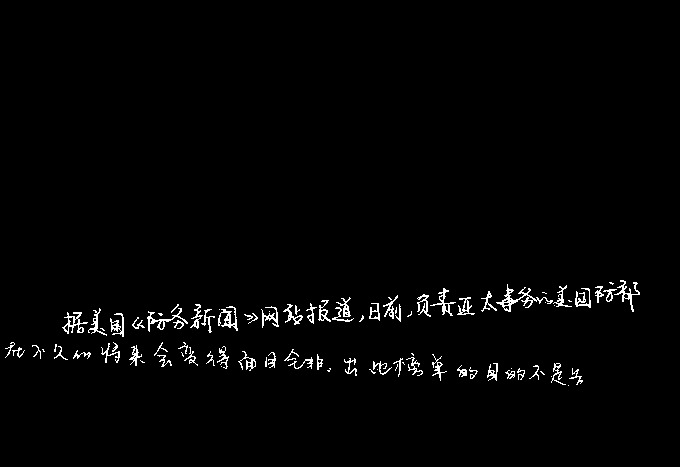 据美国《防务新闻》网站报道,日前,负责亚太事务的美国防部
在不久的将来会变得面目全非。出地榜单的目的不是去